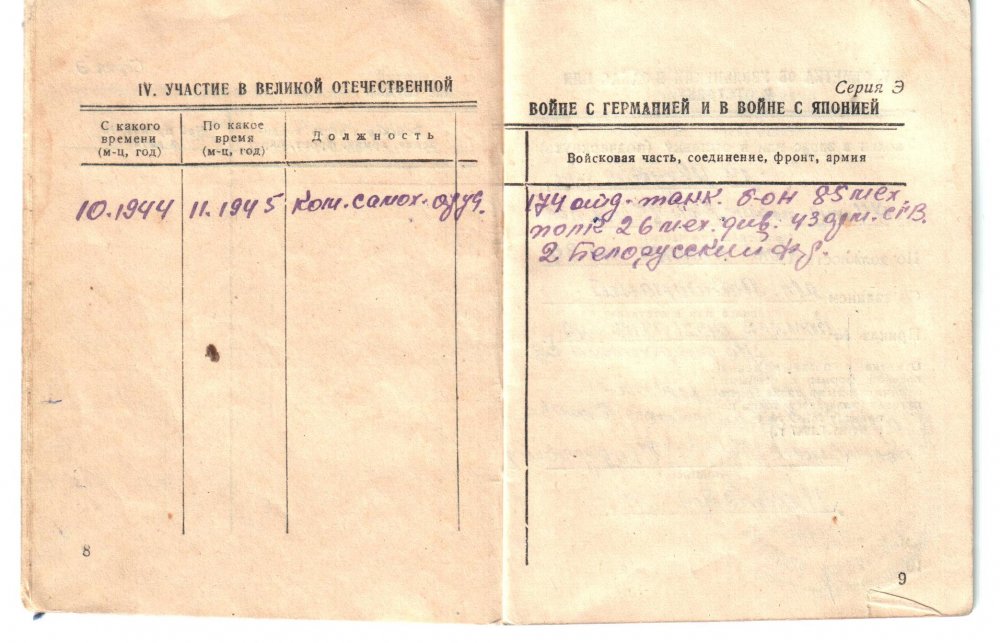 IV. УЧАСТИЕ В ВЕЛИКОЙ ОТЕЧЕСТВЕННОЙ
С какого времени (м-ц, год)
По какое время (м-ц, год)
Должность
10.1944
11.1945
Ком. самох.
8
Серия Э
ВОЙНЕ С ГЕРМАНИЕЙ И В ВОЙНЕ С ЯПОНИЕЙ
Войсковая часть, соединение, фронт, армия
174 танк. б-он 85 мех.
полк 26 мех. див. 43 арм.
2 Белорусский фр.
9